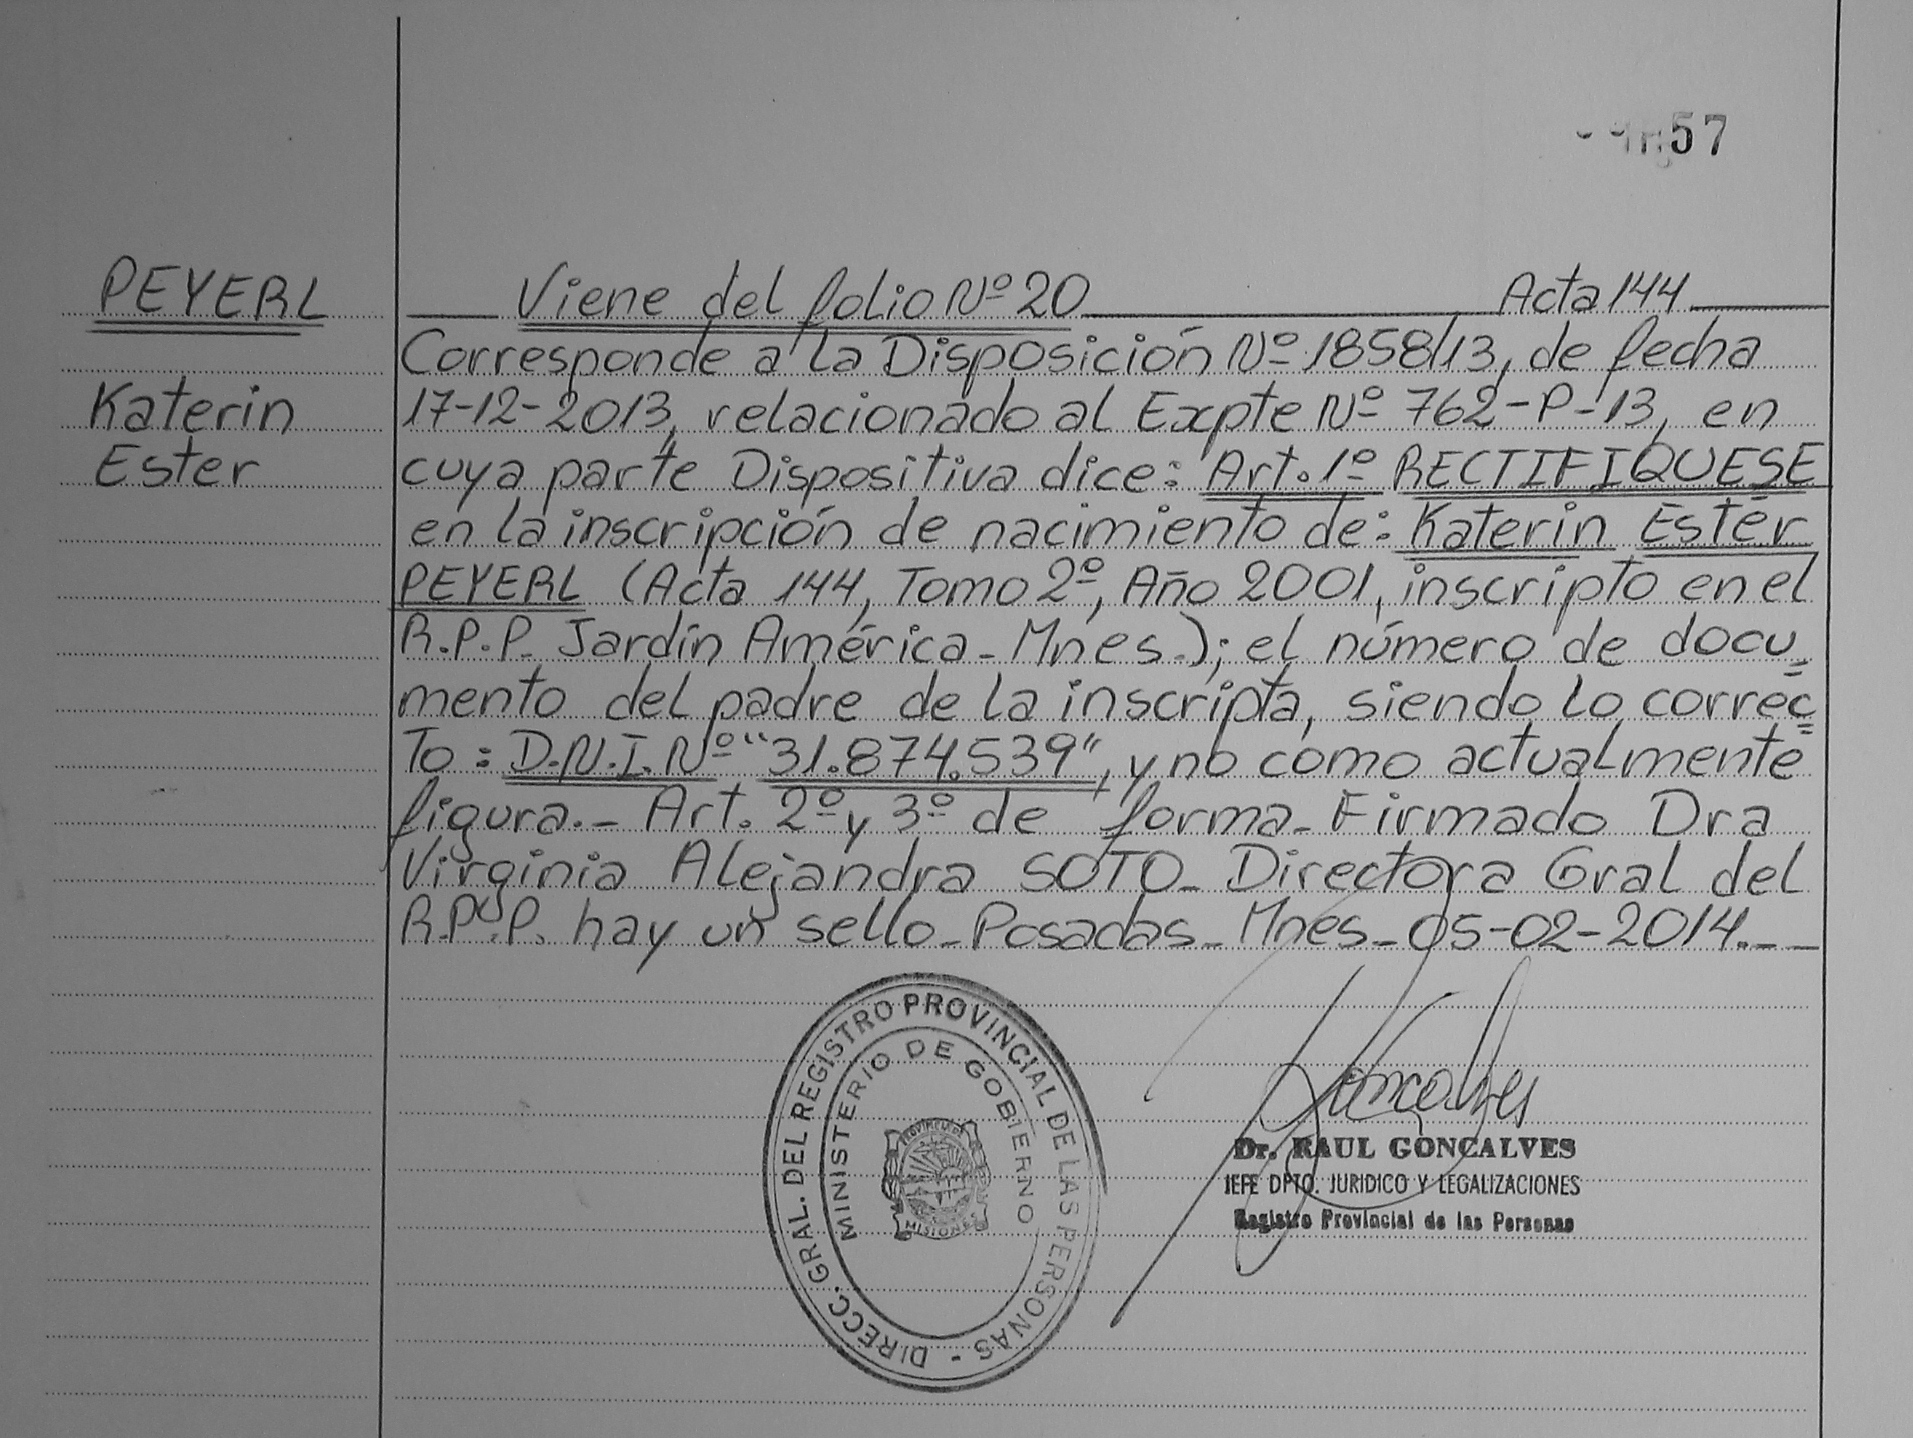 57
PEYERL
Katerin
Ester
Viene del folio Nº 20 Acta 144
Corresponde a la Disposición Nº 1858/13, de fecha
17-12-2013, relacionado al Expte Nº 762-P-13, en
cuya parte Dispositiva dice: Art. 1º RECTIFIQUESE
en la inscripción de nacimiento de: Katerin Ester
PEYERL (Acta 144, Tomo 2º, Año 2001, inscripto en el
R.P.P. Jardín América - Mnes.); el número de docu-
mento del padre de la inscripta, siendo lo correc-
to: D.N.I. Nº "31.874.539", y no como actualmente
figura.- Art. 2º y 3º de forma - Firmado Dra
Virginia Alejandra SOTO - Directora Gral del
R.P.P. hay un sello - Posadas - Mnes - 05-02-2014.-
DIRECC. GRAL. DEL REGISTRO PROVINCIAL DE LAS PERSONAS -
MINISTERIO DE GOBIERNO
PROVINCIA DE
MISIONES
Goncalves
Dr. RAUL GONCALVES
JEFE DPTO. JURIDICO Y LEGALIZACIONES
Registro Provincial de las Personas